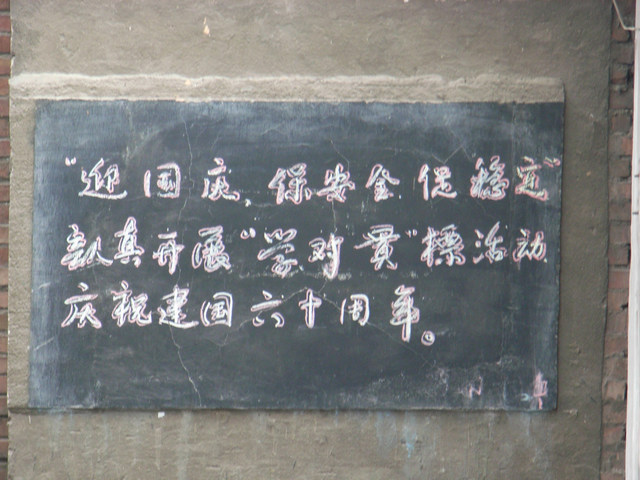 "迎国庆,保安全促稳定"
认真开展"学对贯"标活动
庆祝建国六十周年。